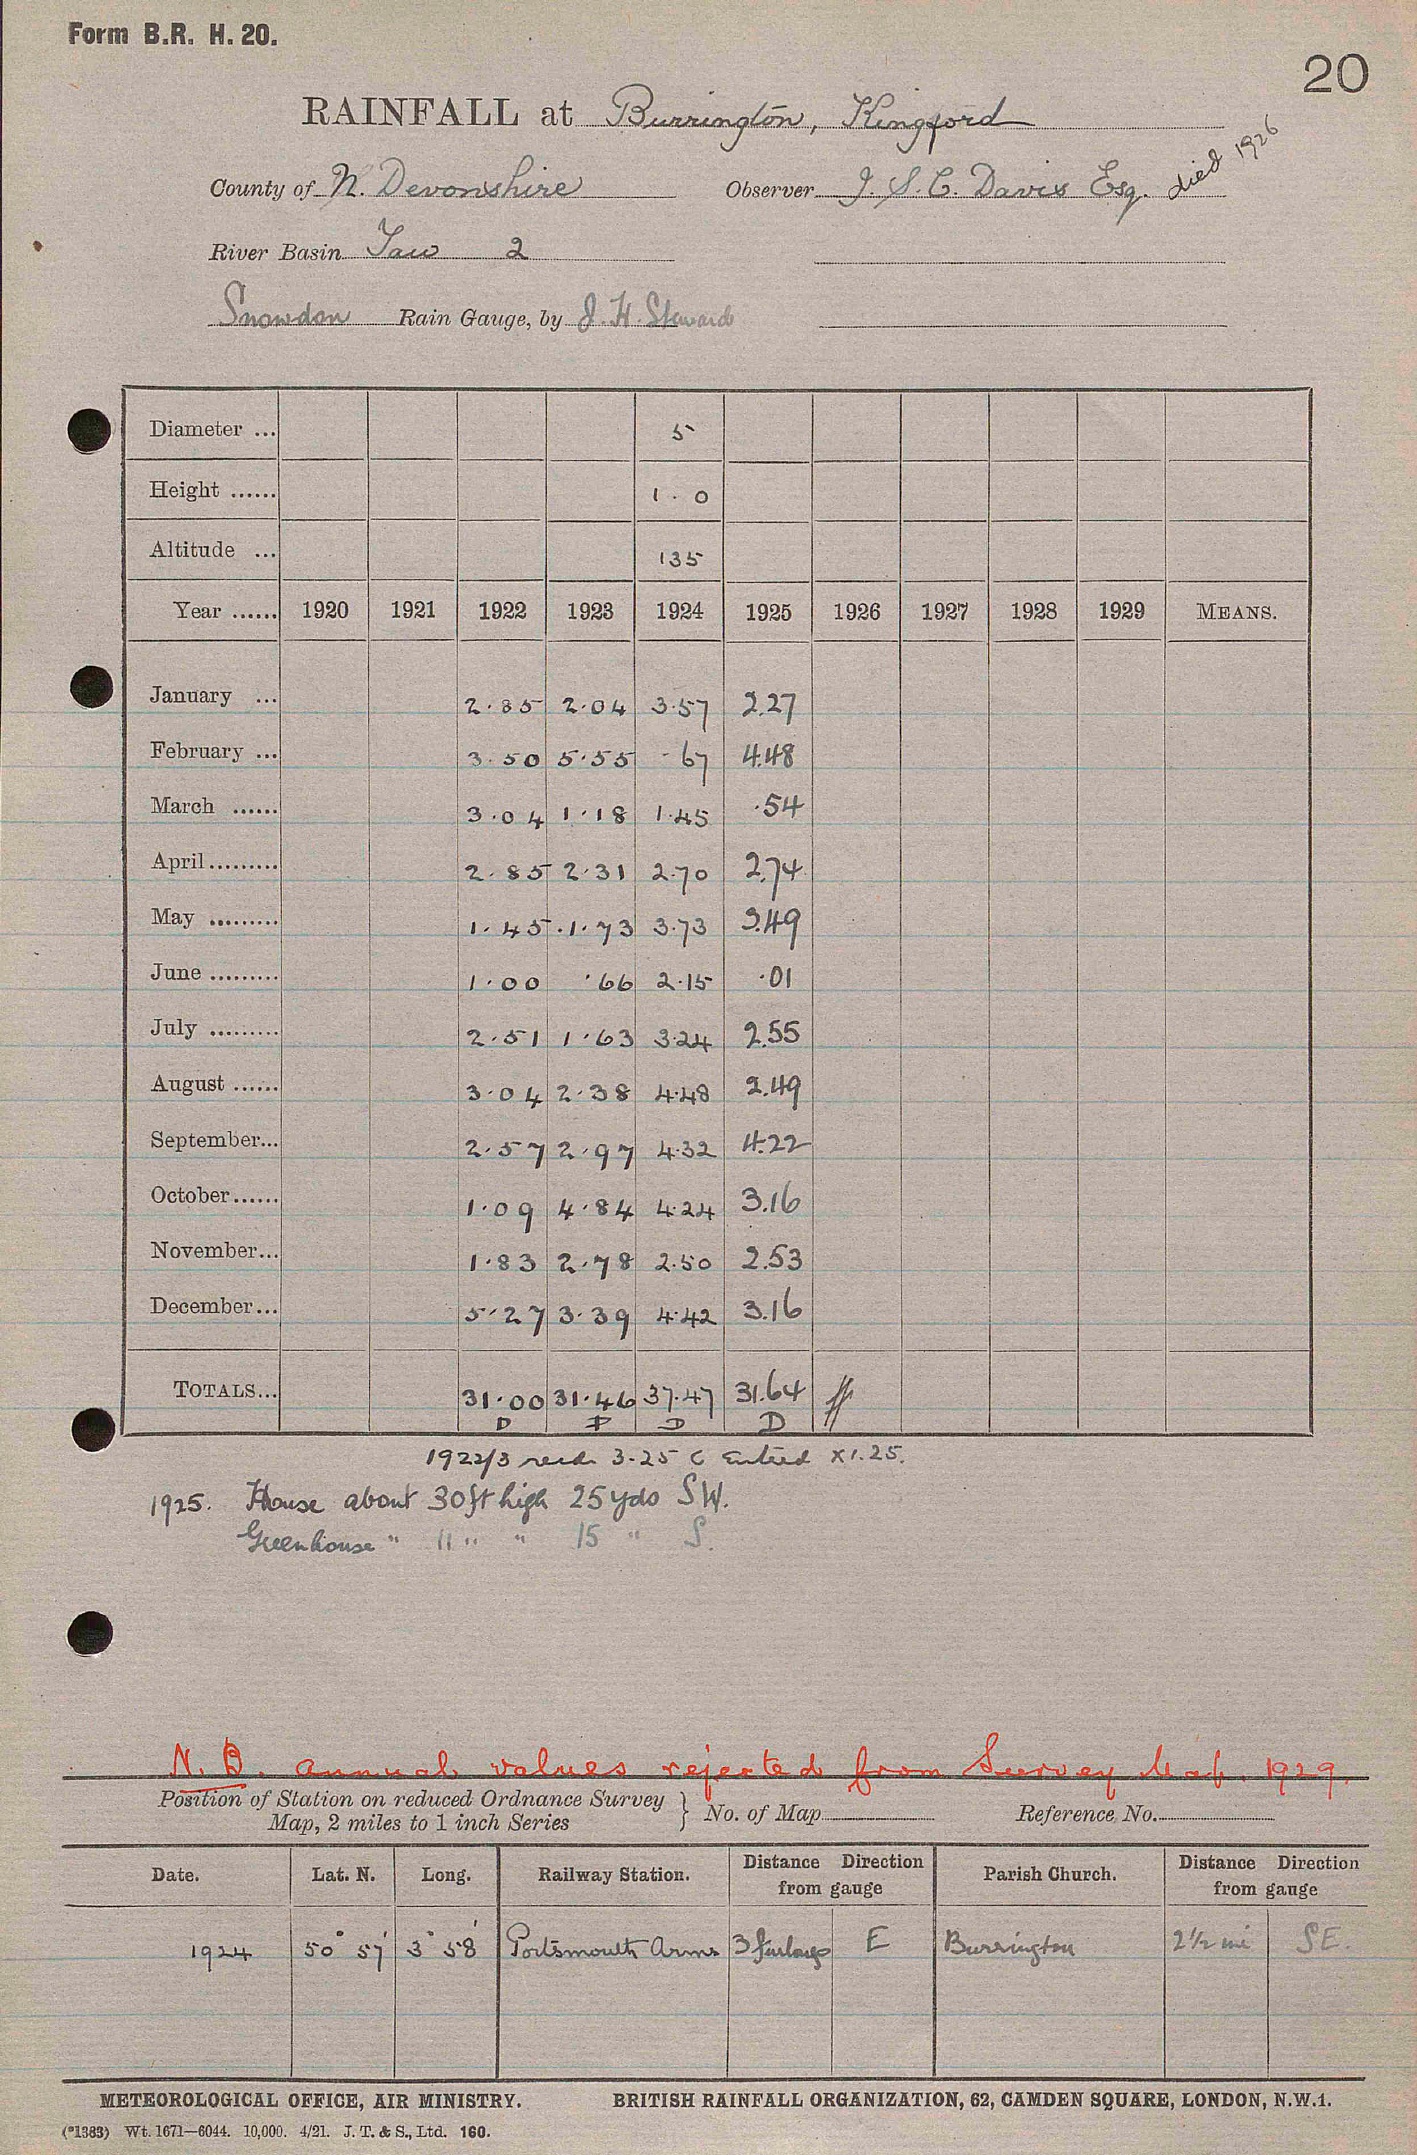 Form B.R. H. 20.
20
RAINFALL at Burrington, Kingford
County of N. Devonshire Observer J. S. C. Davis Esq. died 1926
River Basin Taw 2
Snowdon Rain Gauge, by J. H. Steward
Diameter ... 5
Height ...... 1 . 0
Altitude ... 135
Year ...... 1920 1921 1922 1923 1924 1925 1926 1927 1928 1929 MEANS.
January ... 2.85 2.04 3.57 2.27
February ... 3.50 5.55 .67 4.48
March ...... 3.04 1.18 1.45 .54
April ......... 2.85 2.31 2.70 2.74
May ......... 1.45 1.73 3.73 3.49
June ......... 1.00 .66 2.15 .01
July ......... 2.51 1.63 3.24 2.55
August ...... 3.04 2.38 4.48 2.49
September... 2.57 2.97 4.32 4.22
October...... 1.09 4.84 4.24 3.16
November... 1.83 2.78 2.50 2.53
December... 5.27 3.39 4.42 3.16
TOTALS... 31.00 31.46 37.47 31.64
D D D
1922/3 3.25 Entered x 1.25.
1925. House about 30ft high 25 yds SW.
Greenhouse " 11 " " 15 " S.
N.B. annual values rejected from Survey Map. 1929.
Position of Station on reduced Ordnance Survey Map, 2 miles to 1 inch Series } No. of Map Reference No.
Date. Lat. N. Long. Railway Station. Distance Direction from gauge Parish Church. Distance Direction from gauge
1924 50° 57' 3° 58' Portsmouth Arms 3 furlongs E Burrington 2½ mi SE.
METEOROLOGICAL OFFICE, AIR MINISTRY. BRITISH RAINFALL ORGANIZATION, 62, CAMDEN SQUARE, LONDON, N.W.1.
(*1383) Wt. 1671—6044. 10,000. 4/21. J. T. & S., Ltd. 160.